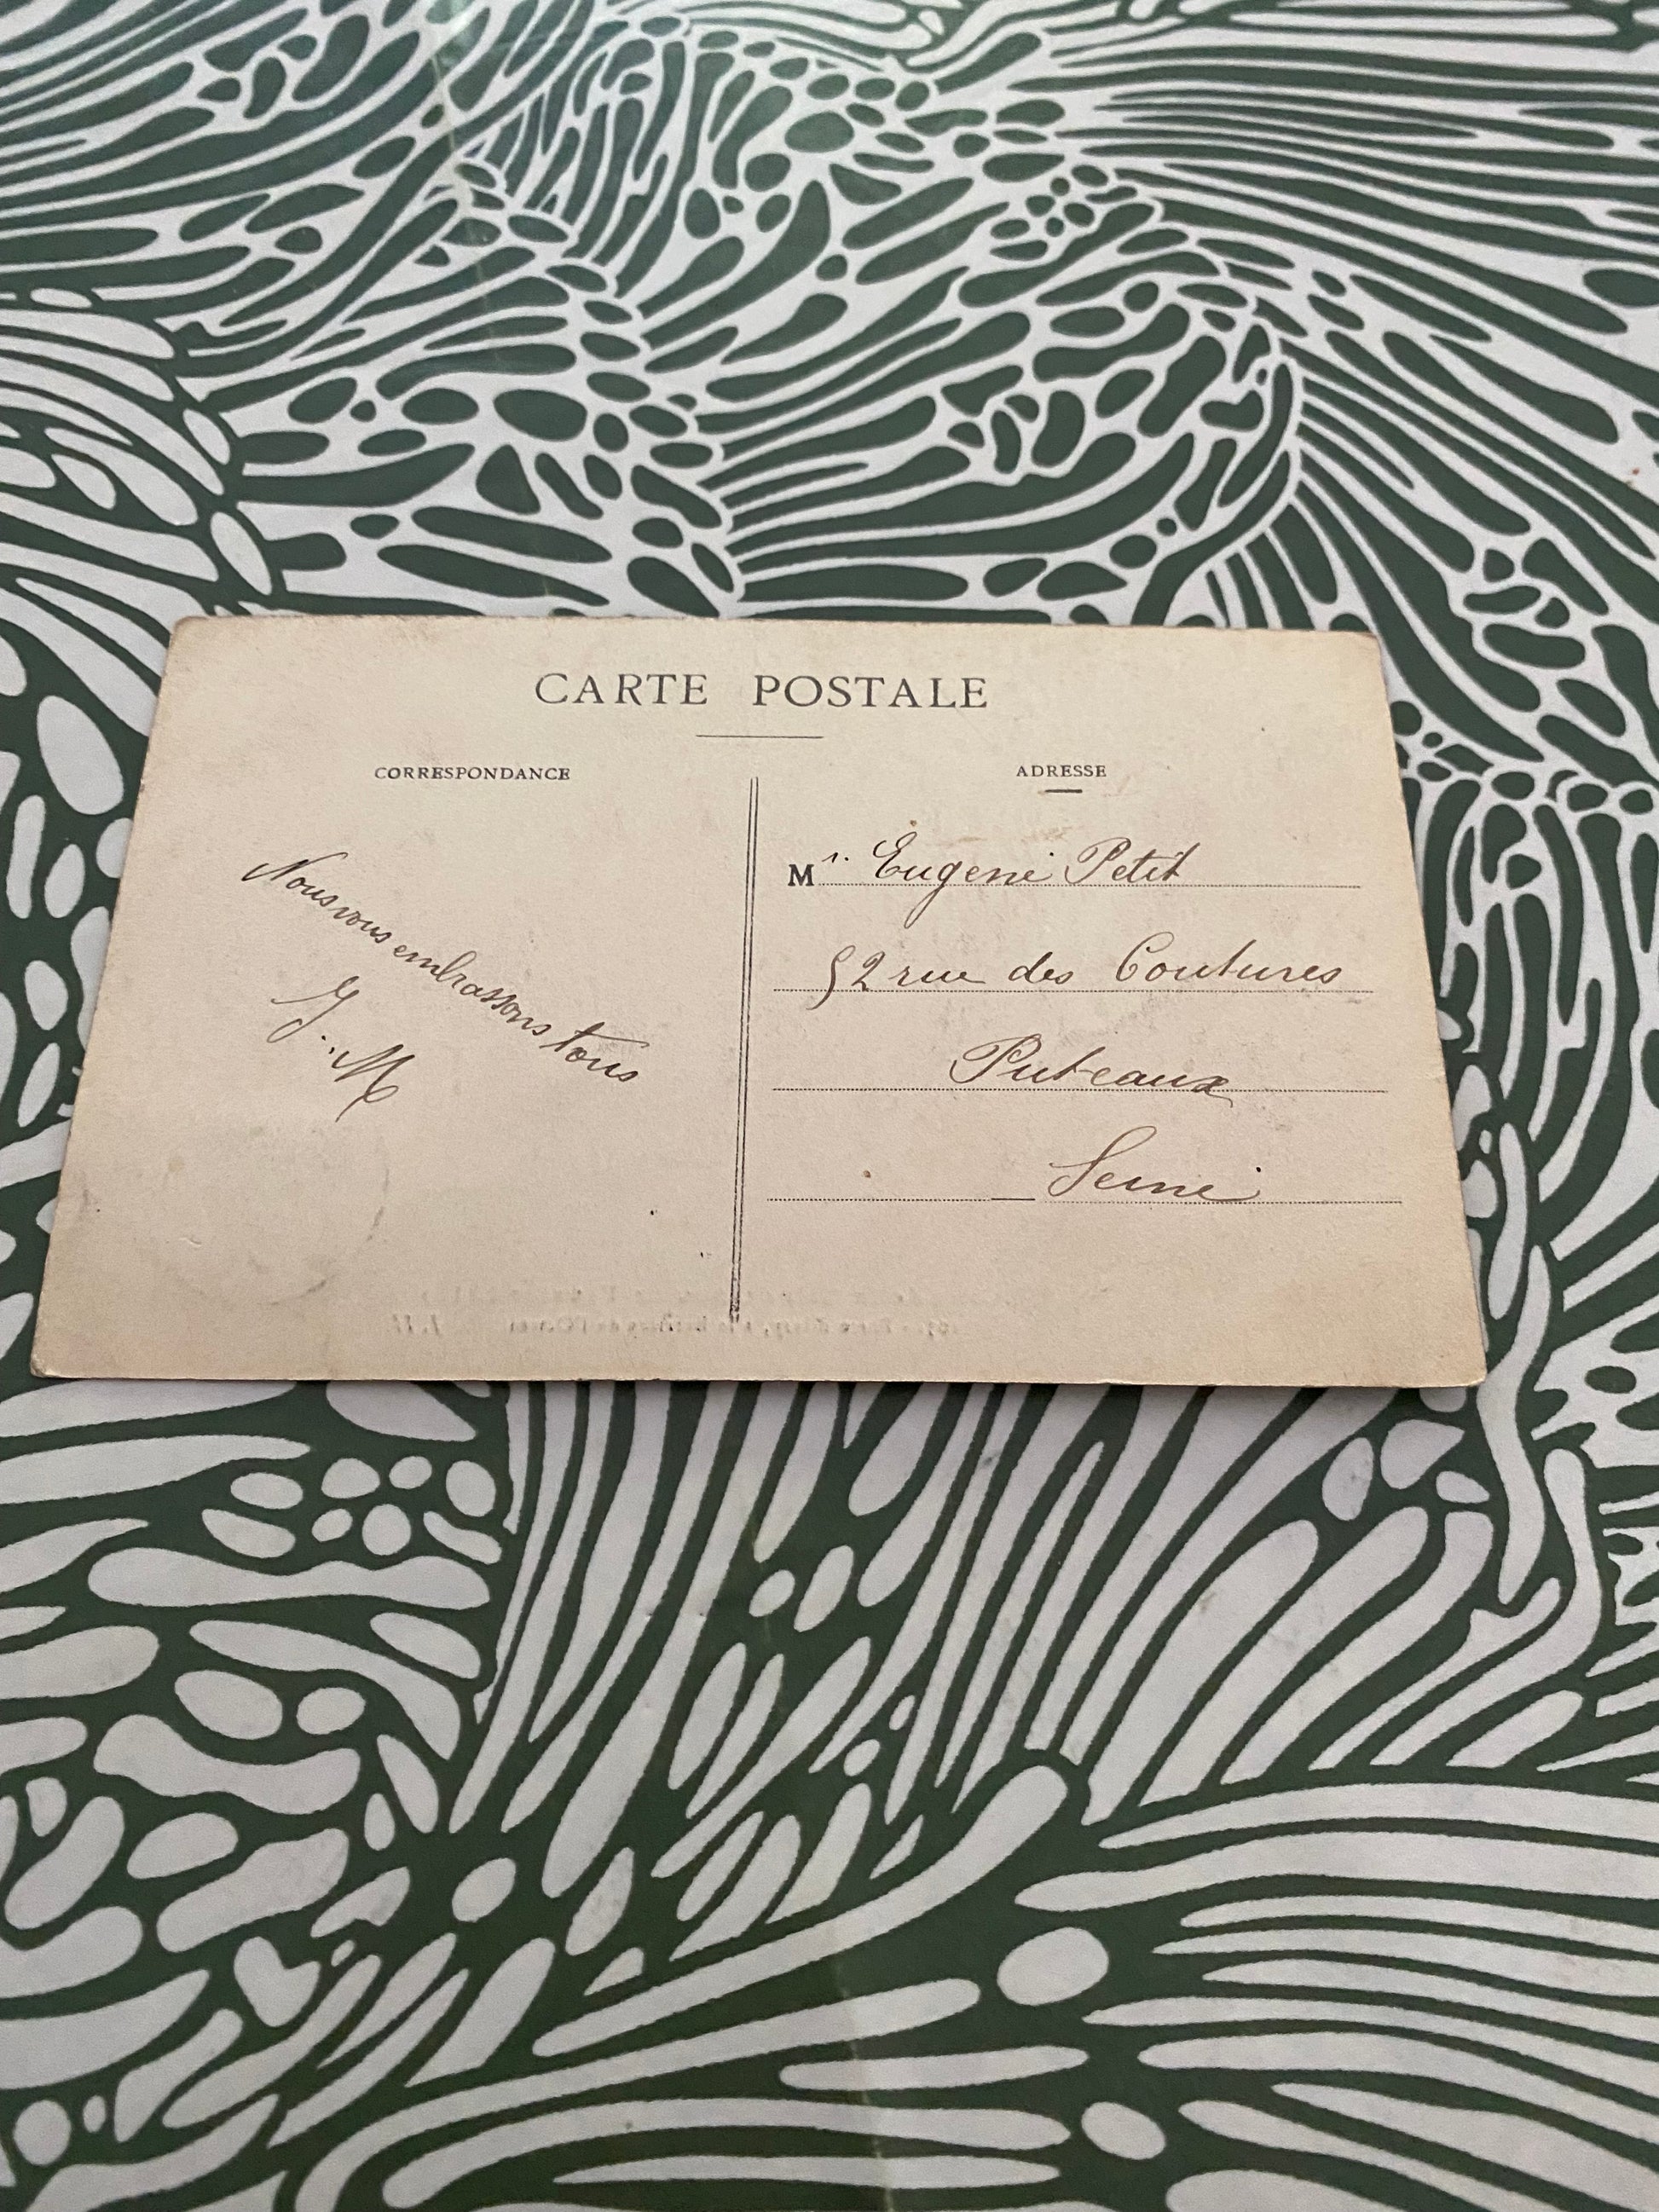 CARTE POSTALE
CORRESPONDANCE
Nous vous embrassons tous
Y. M
ADRESSE
Mr Eugene Petit
52 rue des Coutures
Puteaux
Seine